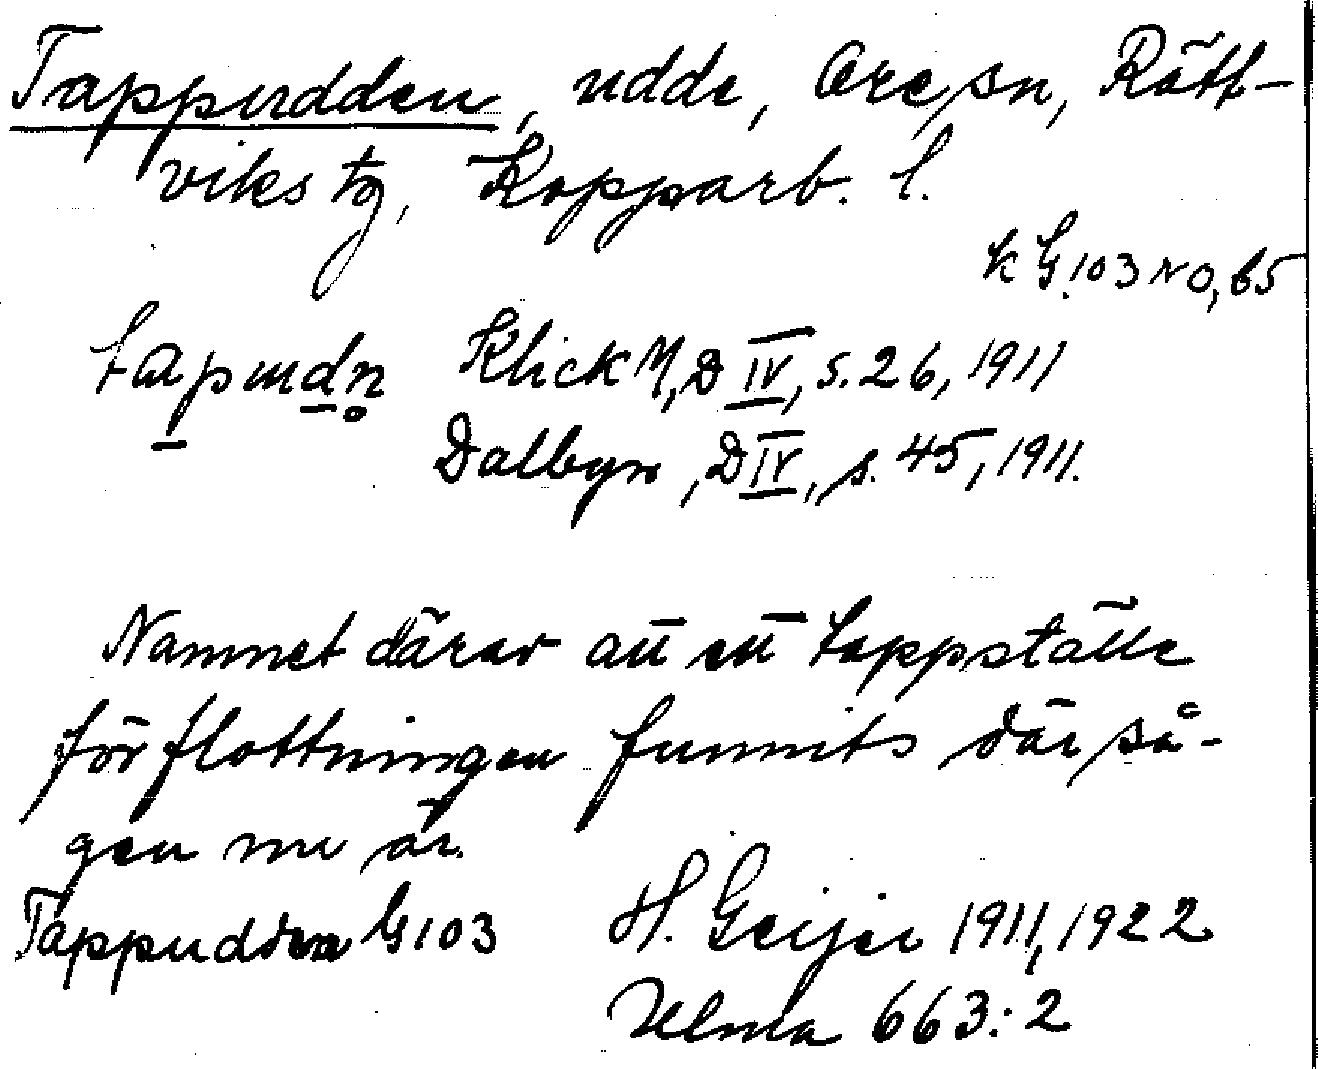 Tappudden, udde, Ore sn, Rätt-
viks tg, Kopparb. l.
k G!103 NO, b5
tapudn Klick M, D IV, s. 26, 1911
Dalbyn, D IV, s. 45, 1911.
Namnet därav att ett tappställe
för flottningen funnits där så-
gen nu är.
Tappudden G103 H. Geijer 1911, 1922
Ulma 663:2